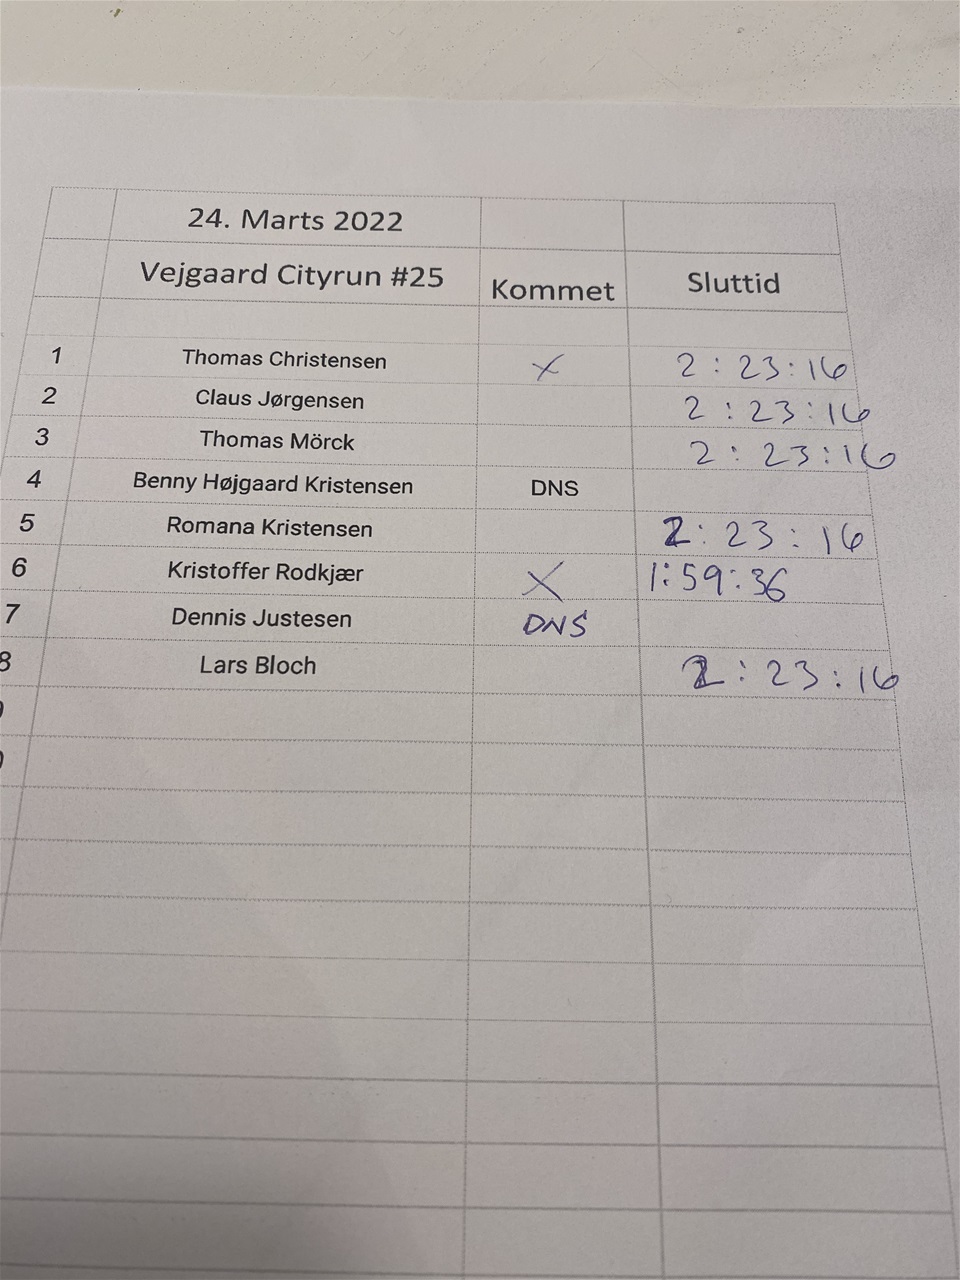 24. Marts 2022
Vejgaard Cityrun #25 Kommet Sluttid
1 Thomas Christensen X 2:23:16
2 Claus Jørgensen 2:23:16
3 Thomas Mörck 2:23:16
4 Benny Højgaard Kristensen DNS
5 Romana Kristensen 2:23:16
6 Kristoffer Rodkjær X 1:59:36
7 Dennis Justesen DNS
8 Lars Bloch 2:23:16